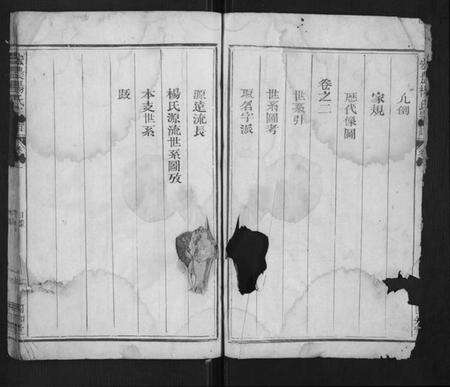 凡例
家規
歷代像圖
卷之二
世系引
世系圖考
取名字派
源遠流長
楊氏源流世系圖攷
本支世系
跋